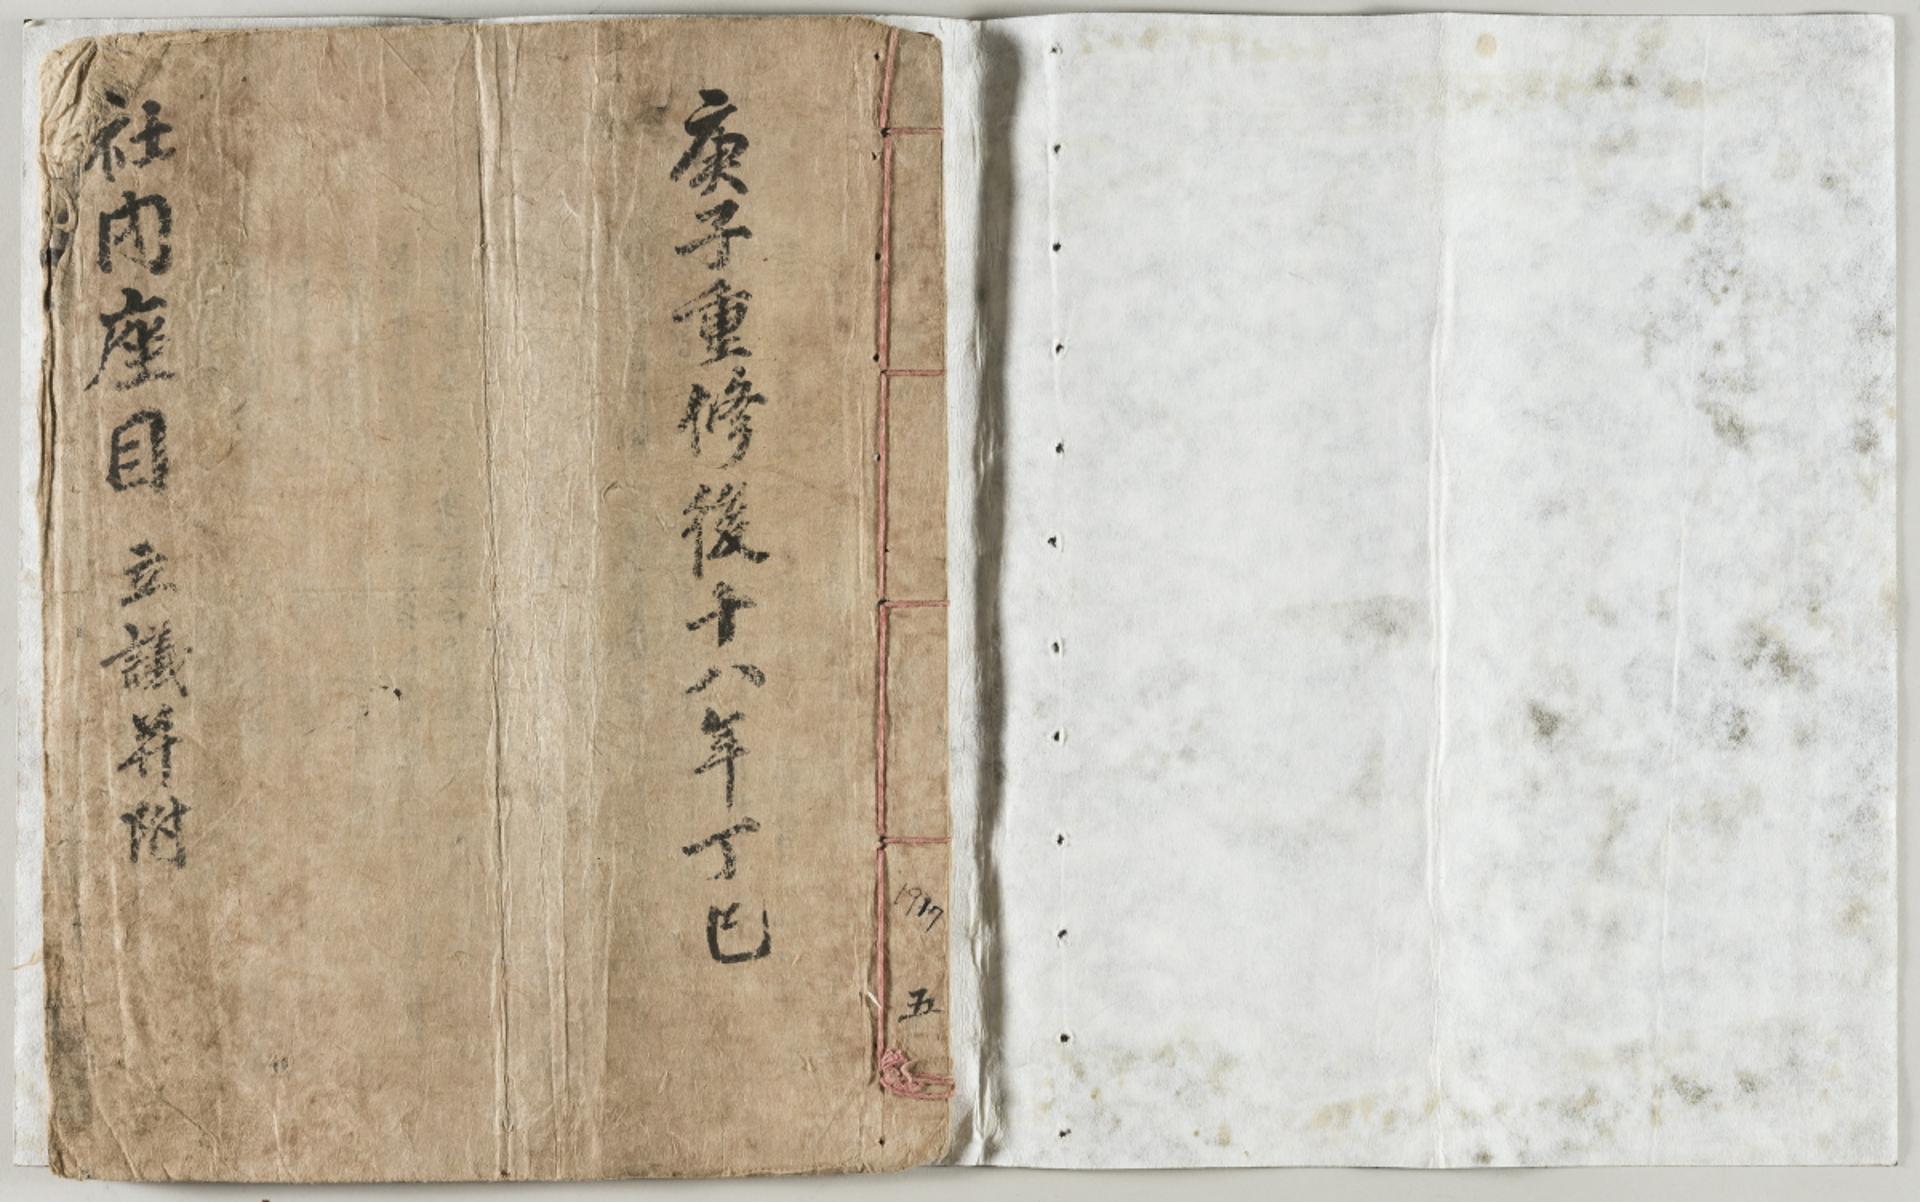 庚子重修後十八年丁巳
社内座目 立議并附
1917
五